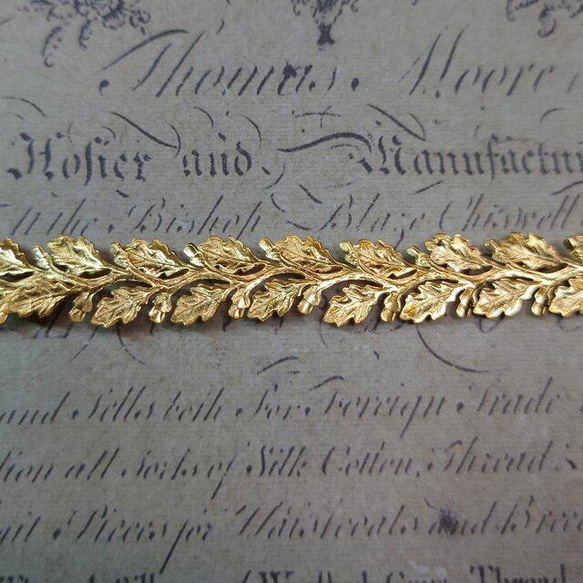 Thomas Moore
Hosier and Manufactur
the Bishop Blaze Chiswell
and Sells both For Foreign Trade
all Sorts of Silk Cotton, Thread &
Pieces for Waistcoats and Bree